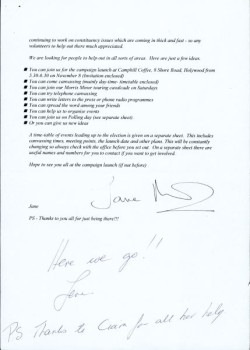 continuing to work on constituency issues which are coming in thick and fast - so any
volunteers to help out there much appreciated.
We are looking for people to help out in all sorts of areas. Here are just a few ideas
■ You can join us for the campaign launch at Camphill Coffee, 8 Shore Road, Holywood from
5.30-6.30 on November 8 (Invitation enclosed)
■ You can come canvassing (mainly day-time- timetable enclosed)
■ You can join our Morris Minor touring cavalcade on Saturdays
■ You can try telephone canvassing
■ You can write letters to the press or phone radio programmes
■ You can spread the word among your friends
■ You can help us to organise events
■ You can join us on Polling day (see separate sheet)
■ Or you can give us new ideas
A time-table of events leading up to the election is given on a separate sheet. This includes
canvassing times, meeting points, the launch date and other plans. This will be constantly
changing so always check with the office before you set out. On a separate sheet there are
useful names and numbers for you to contact if you want to get involved.
Hope to see you all at the campaign launch (if not before)
Jane
PS - Thanks to you all for just being there!!!
Here we go!!
Jane
PS Thanks to for all her help.